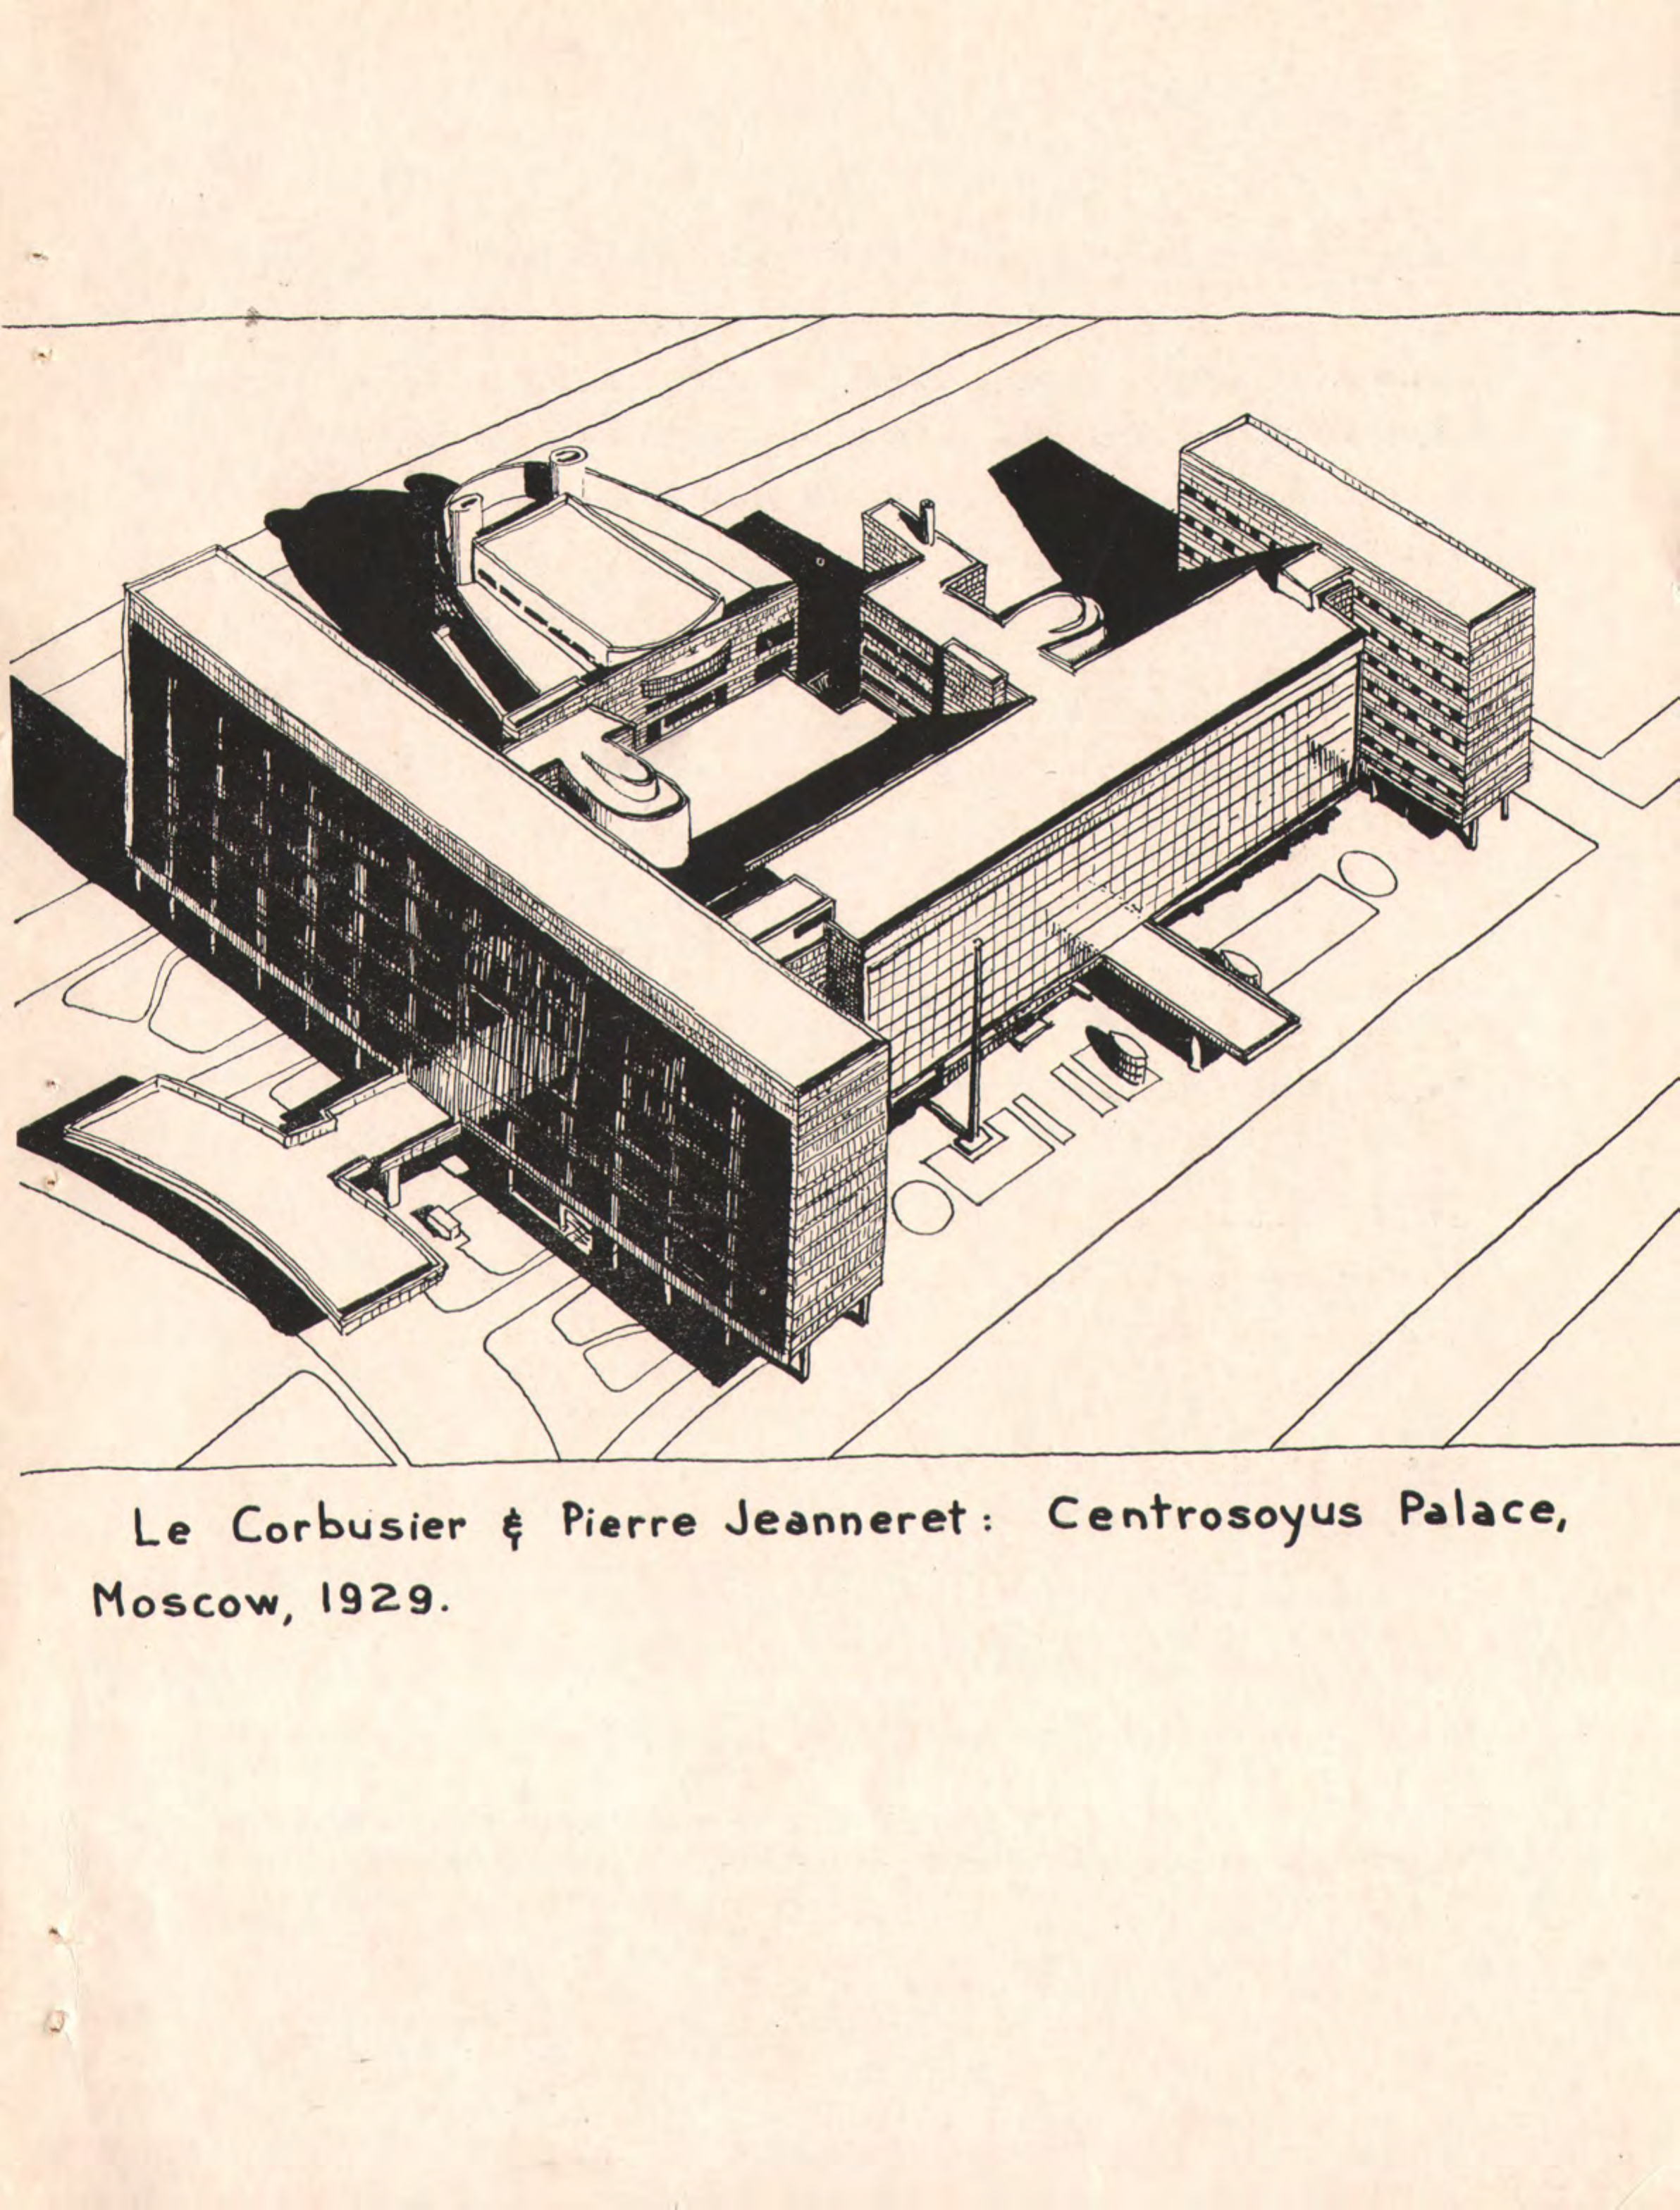 Le Corbusier & Pierre Jeanneret: Centrosoyus Palace,
Moscow, 1929.